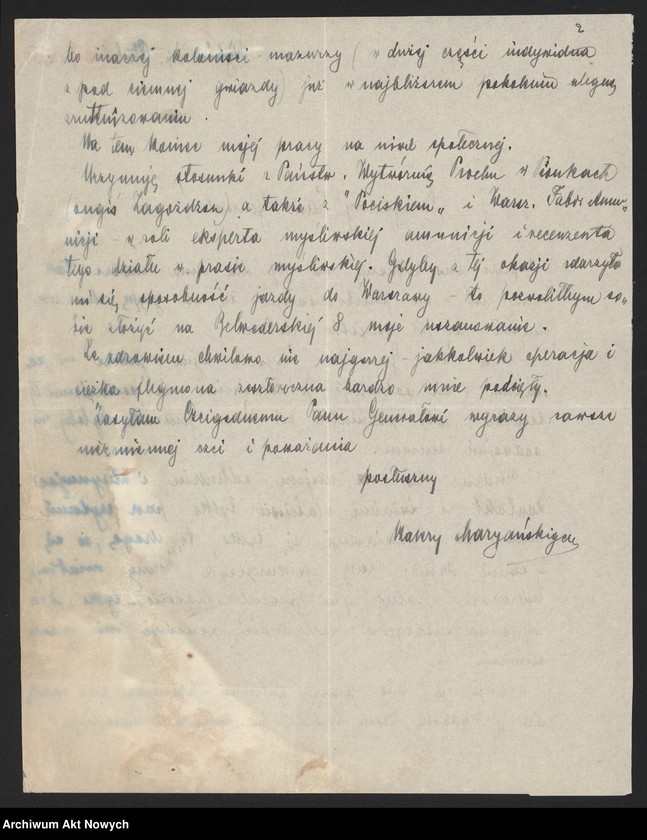 2
bo inaczej koloniści - mazurzy (w dużej części indywidua
z pod ciemnej gwiazdy) już w najbliższem pokoleniu ulegną
zrutenizowaniu.
Na tem koniec mojej pracy na niwie społecznej.
Utrzymuję stosunki z Państw. Wytwórnią Prochu w Pionkach
(ongiś Zagożdżon) a także z "Pociskiem" i Warsz. Fabr. Amu-
nicji - w roli eksperta myśliwskiej amunicji i recenzenta
tego działu w prasie myśliwskiej. Gdyby z tej okazji zdarzyła
mi się sposobność jazdy do Warszawy - to pozwoliłbym so-
bie złożyć na Belwederskiej 8 moje uszanowanie.
Ze zdrowiem chwilowo nie najgorzej - jakkolwiek operacja i
ciężka flegmona zeszłoroczna bardzo mnie podcięły.
Zasyłam Czcigodnemu Panu Generałowi wyrazy zawsze
niezmiennej czci i poważania
posłuszny
Maryański
Archiwum Akt Nowych